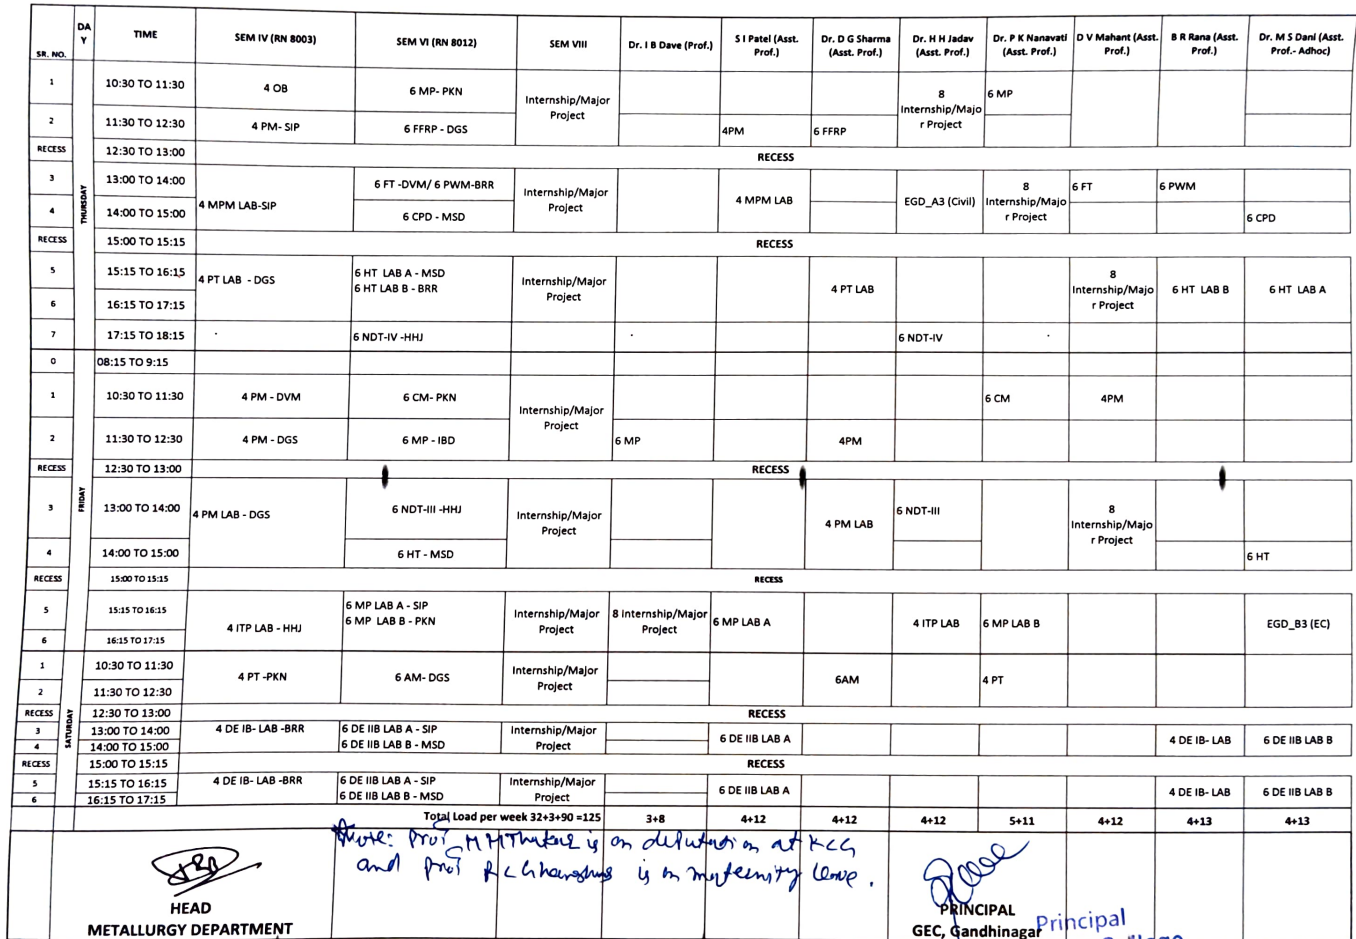 SR. NO. DAY TIME SEM IV (RN 8003) SEM VI (RN 8012) SEM VIII Dr. I B Dave (Prof.) S I Patel (Asst. Prof.) Dr. D G Sharma (Asst. Prof.) Dr. H H Jadav (Asst. Prof.) Dr. P K Nanavati (Asst. Prof.) D V Mahant (Asst. Prof.) B R Rana (Asst. Prof.) Dr. M S Dani (Asst. Prof.- Adhoc)
THURSDAY
1 10:30 TO 11:30 4 OB 6 MP- PKN Internship/Major Project 8 Internship/Major Project 6 MP
2 11:30 TO 12:30 4 PM- SIP 6 FFRP - DGS 4PM 6 FFRP
RECESS 12:30 TO 13:00 RECESS
3 13:00 TO 14:00 4 MPM LAB-SIP 6 FT -DVM/ 6 PWM-BRR Internship/Major Project 4 MPM LAB EGD_A3 (Civil) 8 Internship/Major Project 6 FT 6 PWM
4 14:00 TO 15:00 6 CPD - MSD 6 CPD
RECESS 15:00 TO 15:15 RECESS
5 15:15 TO 16:15 4 PT LAB - DGS 6 HT LAB A - MSD Internship/Major Project 4 PT LAB 8 Internship/Major Project 6 HT LAB B 6 HT LAB A
6 HT LAB B - BRR
6 16:15 TO 17:15
7 17:15 TO 18:15 6 NDT-IV -HHJ 6 NDT-IV
FRIDAY
0 08:15 TO 9:15
1 10:30 TO 11:30 4 PM - DVM 6 CM- PKN Internship/Major Project 6 CM 4PM
2 11:30 TO 12:30 4 PM - DGS 6 MP - IBD 6 MP 4PM
RECESS 12:30 TO 13:00 RECESS
3 13:00 TO 14:00 4 PM LAB - DGS 6 NDT-III -HHJ Internship/Major Project 4 PM LAB 6 NDT-III 8 Internship/Major Project
4 14:00 TO 15:00 6 HT - MSD 6 HT
RECESS 15:00 TO 15:15 RECESS
5 15:15 TO 16:15 4 ITP LAB - HHJ 6 MP LAB A - SIP Internship/Major Project 8 Internship/Major Project 6 MP LAB A 4 ITP LAB 6 MP LAB B EGD_B3 (EC)
6 MP LAB B - PKN
6 16:15 TO 17:15
SATURDAY
1 10:30 TO 11:30 4 PT -PKN 6 AM- DGS Internship/Major Project 6AM 4 PT
2 11:30 TO 12:30
RECESS 12:30 TO 13:00 RECESS
3 13:00 TO 14:00 4 DE IB- LAB -BRR 6 DE IIB LAB A - SIP Internship/Major Project 6 DE IIB LAB A 4 DE IB- LAB 6 DE IIB LAB B
4 14:00 TO 15:00 6 DE IIB LAB B - MSD
RECESS 15:00 TO 15:15 RECESS
5 15:15 TO 16:15 4 DE IB- LAB -BRR 6 DE IIB LAB A - SIP Internship/Major Project 6 DE IIB LAB A 4 DE IB- LAB 6 DE IIB LAB B
6 16:15 TO 17:15 6 DE IIB LAB B - MSD
Total Load per week 32+3+90 =125 3+8 4+12 4+12 4+12 5+11 4+12 4+13 4+13
Note: Prof MM is on deputation at KCG
and Prof is on maternity leave.
HEAD
METALLURGY DEPARTMENT
PRINCIPAL
GEC, Gandhinagar
Principal